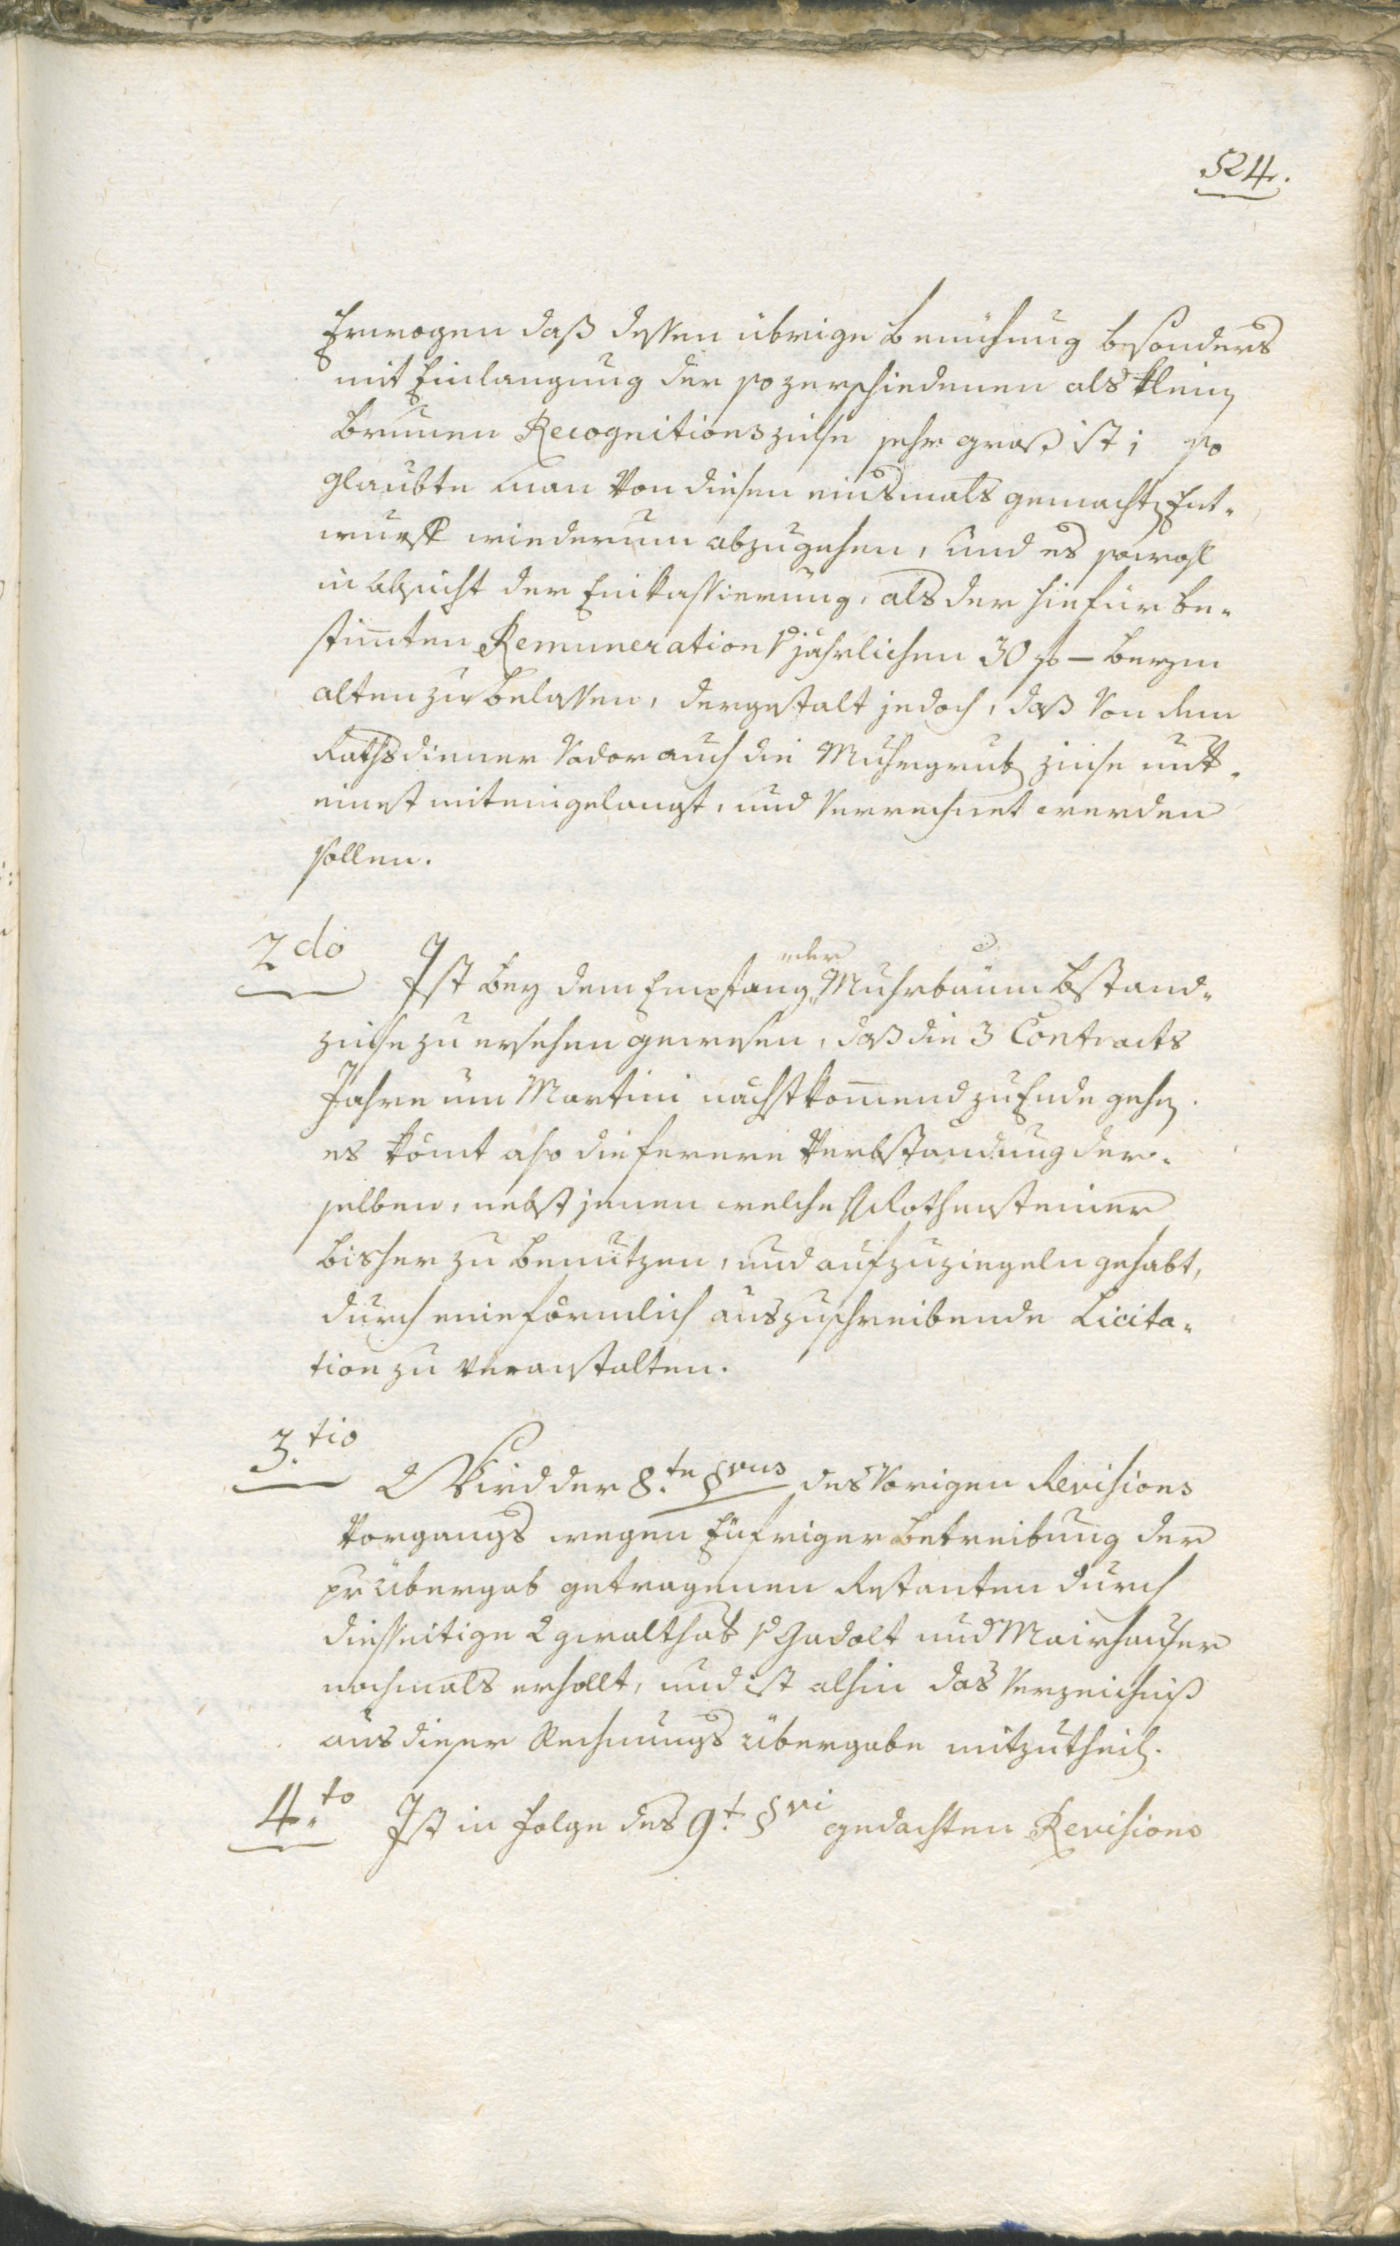 524.
Erwogen daß dessen übrige Bemühung besonders
mit Einlangung der so zerschiedenen als kleinen
Brunen Recognitionszinse sehr groß ist; so
glaubte man von diesen einsmals gemachten Ent-
wurff wiederum abzugehen, und es sowohl
in Absicht der Einkassierung, als der hiefür be-
stimten Remuneration jährlichen 30 f – beym
alten zu belassen, dergestalt jedoch, daß von dem
Rathsdiener Vador auch die Muhrgrub zinse mit-
einst miteingelangt, und verrechnet werden
sollen.
2do Ist bey dem Empfang der Muhrbäum bstand-
zinse zu ersehen gewesen, daß die 3 Contracts
Jahre um Martini nächstkommend zu Ende gehen.
es kömt also die fernere Verbstandung der-
selben, nebst jenen welche Rothensteiner
bisher zu benutzen, und aufzuziegeln gehabt,
durch eine förmlich auszuschreibende Licita-
tion zu veranstalten.
3.tio Wird der 8.te §vus des vorigen Revisions
Vorgangs wegen Eüfriger Betreibung der
pr übergab getragenen Restanten durch
diesseitige Gwalthab Gadolt und Mairhauser
nochmals erhollt, und ist alhin das Verzeichniß
aus dieser Rechnungs übergabe mitzutheilen.
4.to Ist in Folge des 9.t §vi gedachten Revisions